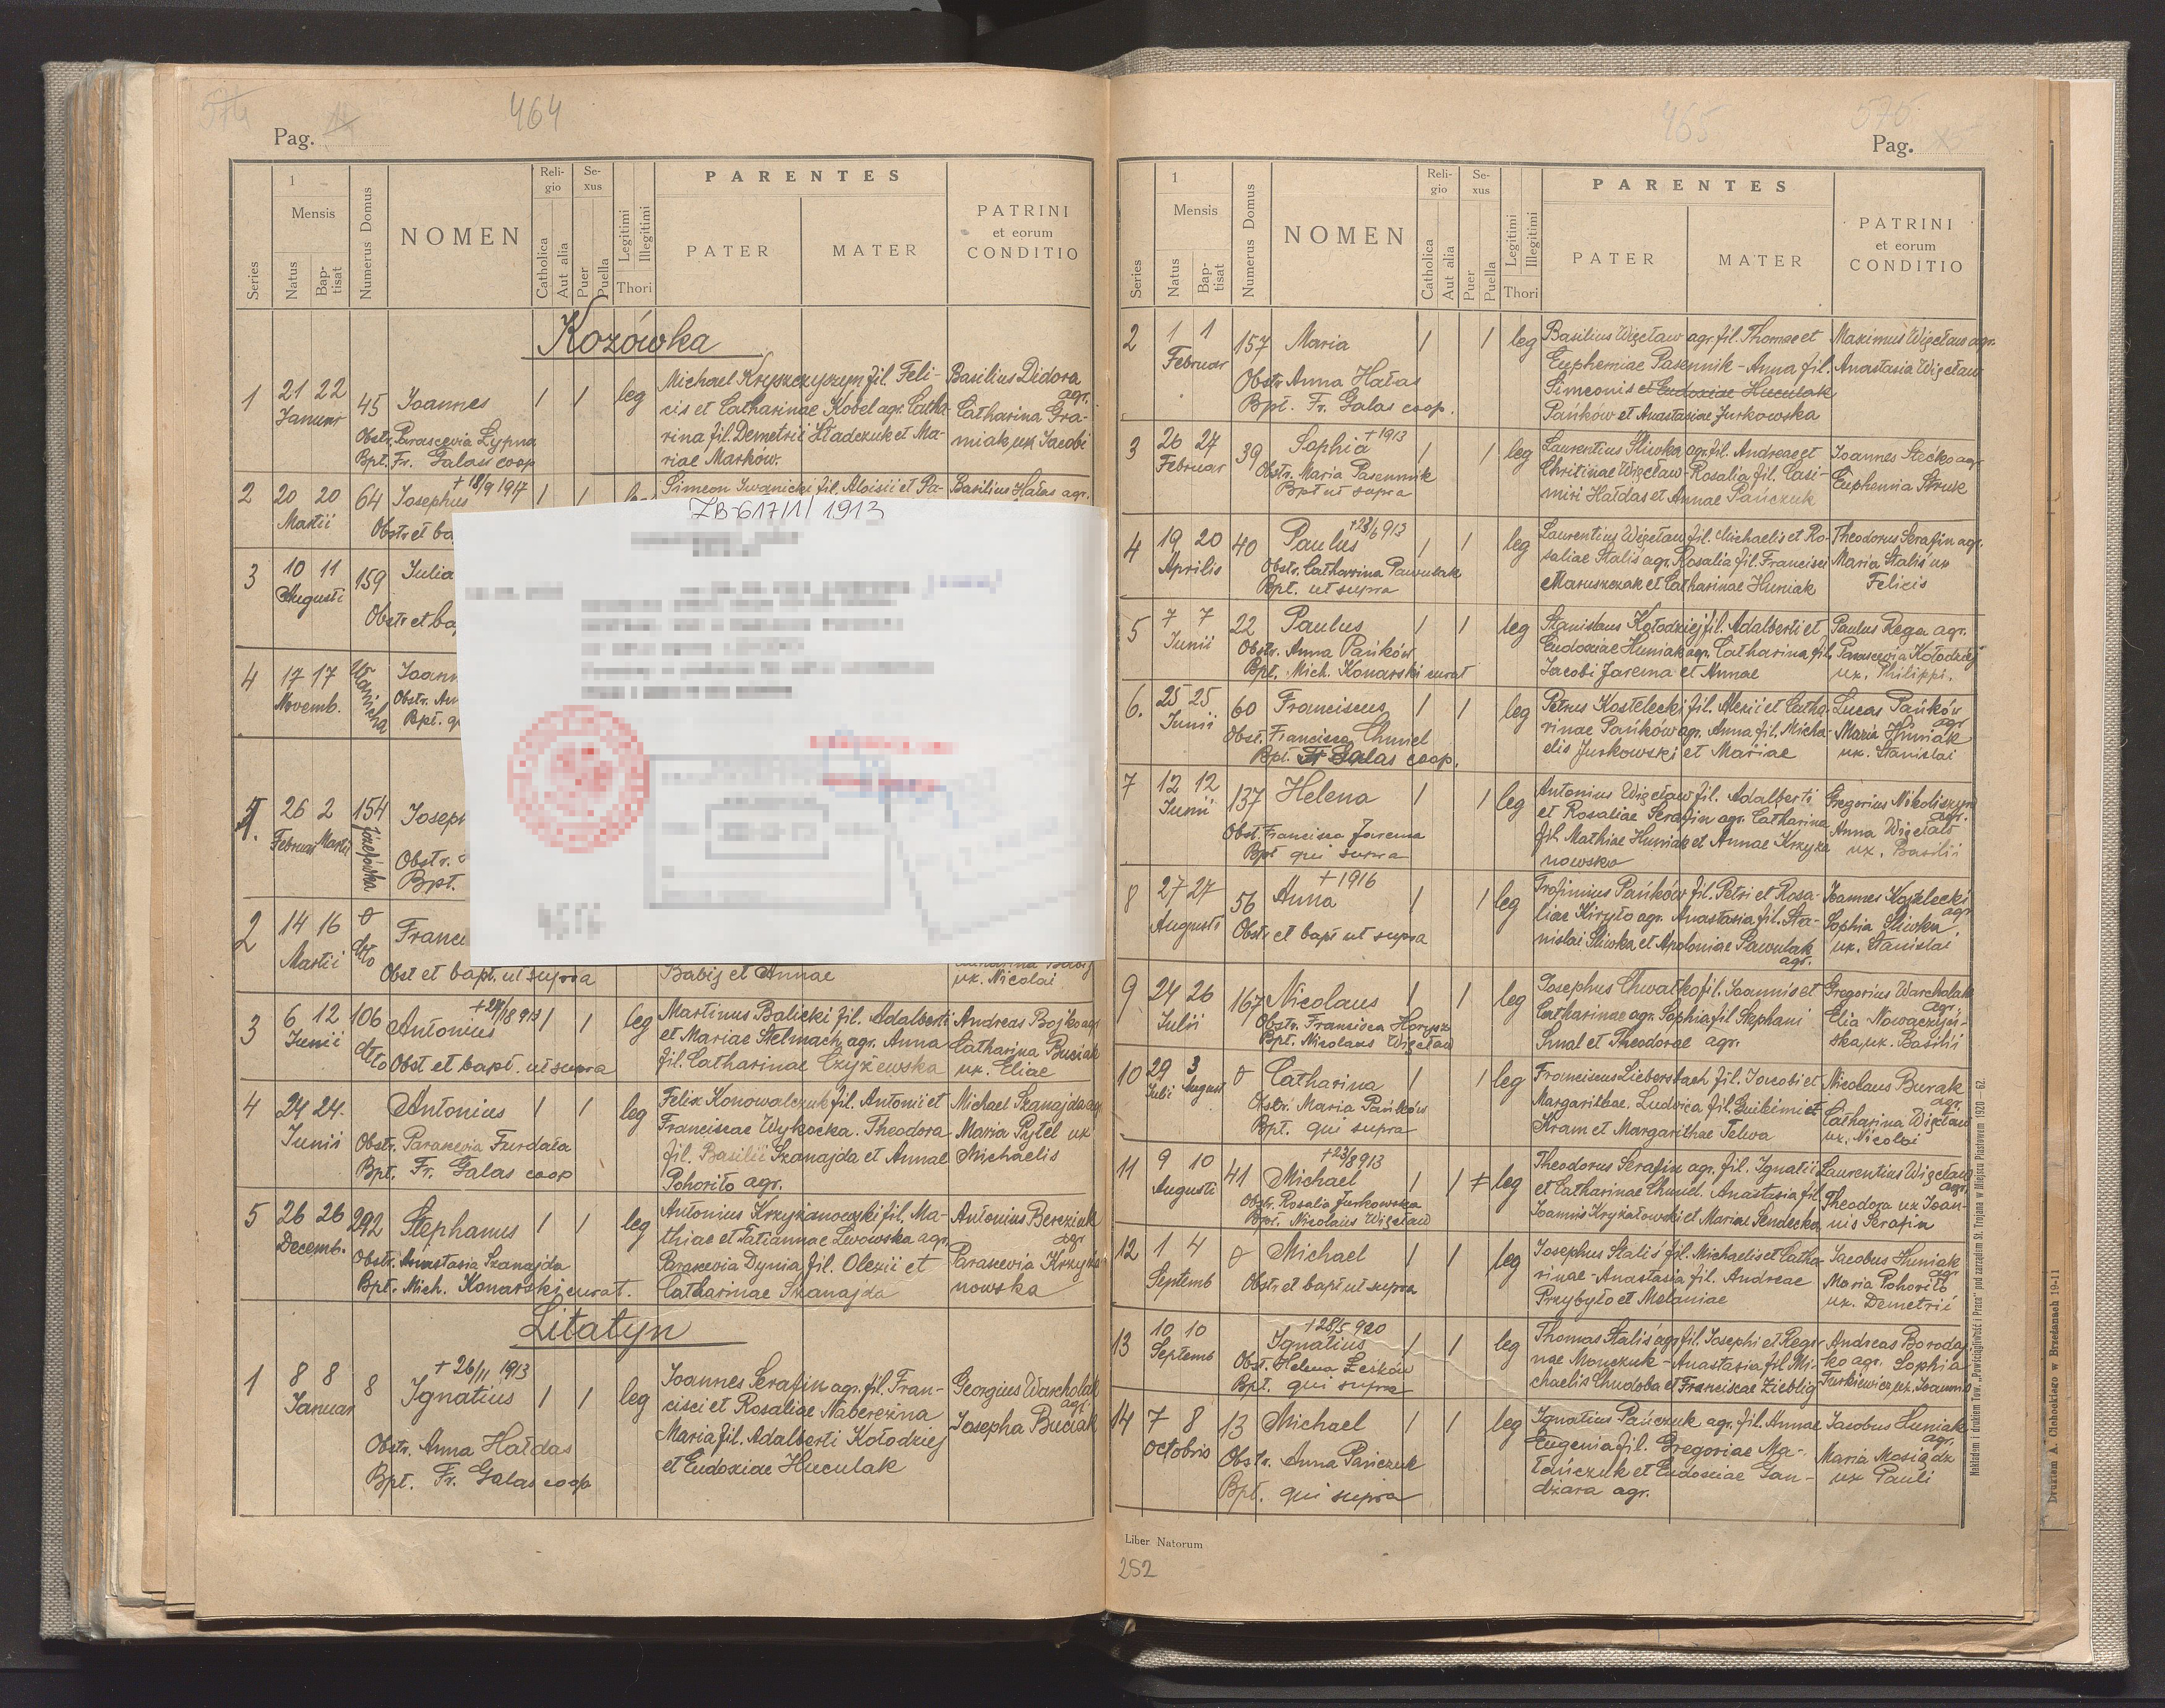 464
Pag.
Series
1
Mensis
Natus
Bap-
tisat
Numerus Domus
NOMEN
Reli-
gio
Catholica
Aut alia
Se-
xus
Puer
Puella
Legitimi
Illegitimi
Thori
PARENTES
PATER
MATER
PATRINI
et eorum
CONDITIO
Kozówka
1 21 22 45 Joannes 1 1 leg
Januar
Obstr. Parascevia Lypna
Bpt. Fr. Galas coop
Michael Kryszczyszyn fil. Feli-
cis et Catharinae Kobel agr. Catha-
rina fil. Demetrii Hładczuk et Ma-
riae Marków.
Basilius Didora
agr.
Catharina Gra-
miak, ux Jacobi
2 20 20 64 Josephus + 18/9 1917 1 1
Martii
Obstr et ba
Simeon Iwanicki fil. Aloisii et Pa-
Basilius Hałas agr.
ZB-617/1/1913
3 10 11 159 Julia
Augusti
Obstr et ba
4 17 17 Joann
Novemb.
Obstr. An
Bpt. q
1. 26 2 154 Joseph
Februar Martii Józefówka
Obstr.
Bpt.
2 14 16 dto Franci
Martii
Obst et bapt. ut supra
Babij et Annae
ux. Nicolai
3 6 12 106 Antonius 1 1 leg
Junii dto
Obst et bapt. ut supra
Martinus Balicki fil. Adalberti
et Mariae Stelmach agr. Anna
fil. Catharinae Czyżewska
Andreas Bojko agr
Catharina Buciak
ux. Eliae
4 24 24. Antonius 1 1 leg
Junii
Obstr. Parascevia Furdała
Bpt. Fr. Galas coop
Felix Konowalczuk fil. Antonii et
Franciscae Wykocka. Theodora
fil. Basilii Szanajda et Annae
Pohoriło agr.
Michael Szanajda agr
Maria Pytel ux
Michaelis
5 26 26 292 Stephanus 1 1 leg
Decemb.
Obstr. Anastasia Szanajda
Bpt. Mich. Konarski curat.
Antonius Krzyżanowski fil. Ma-
thiae et Tatiannae Lwowska agr.
Parascevia Dynia fil. Olexii et
Catharinae Szanajda
Antonius Bereziuk
agr
Parascevia Krzyża
nowska
Litatyn
1 8 8 8 Ignatius + 26/11 1913 1 1 leg
Januar
Obstr. Anna Hałdas
Bpt. Fr. Galas coop
Joannes Serafin agr. fil. Fran-
cisci et Rosaliae Naberezna
Maria fil. Adalberti Kołodziej
et Eudoxiae Huculak
Georgius Warcholak
agr.
Josepha Buciak
465
Pag.
Series
1
Mensis
Natus
Bap-
tisat
Numerus Domus
NOMEN
Reli-
gio
Catholica
Aut alia
Se-
xus
Puer
Puella
Legitimi
Illegitimi
Thori
PARENTES
PATER
MATER
PATRINI
et eorum
CONDITIO
2 1 1 157 Maria 1 1 leg
Februar
Obstr Anna Hałas
Bpt. Fr. Galas coop.
Basilius Więcław agr. fil. Thomae et
Euphemiae Pasennik - Anna fil.
Simeonis et Eudoxiae Huculak
Pańków et Anastasiae Jurkowska
Maximus Więcław agr.
Anastasia Więcław
3 26 27 39 Sophia +1913 1 1 leg
Februar
Obstr. Maria Pasennik
Bpt ut supra
Laurentius Śliwka agr. fil. Andreae et
Chritinae Więcław - Rosalia fil. Casi-
miri Hałdas et Annae Pańczuk
Joannes Stećko agr
Euphemia Struk
4 19 20 40 Paulus +28/6 913 1 1 leg
Aprilis
Obstr. Catharina Pawulak
Bpt. ut supra
Laurentius Więcław fil. Michaelis et Ro-
saliae Staliś agr. Rosalia fil. Francisci
Maruszczak et Catharinae Huniak
Theodorus Serafin agr.
Maria Staliś ux
Felicis
5 7 7 22 Paulus 1 1 leg
Junii
Obstr. Anna Pańków
Bpt. Mich. Konarski curat
Stanislaus Kołodziej fil. Adalberti et
Eudoxiae Huniak agr. Catharina fil.
Jacobi Jarema et Annae
Paulus Rega agr.
Parascevia Kołodziej
ux. Philippi.
6. 25 25 60 Franciscus 1 1 leg
Junii
Obst. Francisca Chmiel
Bpt. Fr Galas coop.
Petrus Kostelecki fil. Alexii et Catha-
rinae Pańków agr. Anna fil. Micha-
elis Jurkowski et Mariae
Lucas Pańków
agr
Maria Huniak
ux. Stanislai
7 12 12 137 Helena 1 1 leg
Junii
Obst. Francisca Jarema
Bpt qui supra
Antonius Więcław fil. Adalberti
et Rosaliae Serafin agr. Catharina
fil. Mathiae Huniak et Annae Krzyża
nowska
Gregorius Nikoliszyn
agr.
Anna Więcław
ux. Basilii
8 27 27 56 Anna +1916 1 1 leg
Augusti
Obstr et bapt ut supra
Trofimius Pańków fil. Petri et Rosa-
liae Kiryło agr. Anastasia fil. Sta-
nislai Śliwka et Apoloniae Pawulak
agr.
Joannes Kostelecki
agr
Sophia Śliwka
ux. Stanislai
9 24 26 167 Nicolaus 1 1 leg
Julii
Obstr. Francisca Horysz
Bpt. Nicolaus Więcław
Josephus Chwałko fil. Joannis et
Catharinae agr. Sophia fil Stephani
Smal et Theodorae agr.
Gregorius Warcholak
agr.
Elia Nowaczyń-
ska, ux. Basilii
10 29 3 Catharina 1 1 leg
Juli August
Obstr. Maria Pańków
Bpt. qui supra
Franciscus Liebersbach fil. Jacobi et
Margarithae. Ludvica fil. et
Kram et Margarithae Telwa
Nicolaus Burak
agr
Catharina Więcław
ux. Nicolai
11 9 10 41 Michael +23/8 913 1 1 leg
Augusti
Obstr. Rosalia Jurkowska
Bpt. Nicolaus Więcław
Theodorus Serafin agr. fil. Ignatii
et Catharinae Chmiel. Anastasia fil
Joannis Kryżałowski et Mariae Sendecka
Laurentius Więcław
agr.
Theodora ux Joan-
nis Serafin
12 1 4 Michael 1 1 leg
Septemb
Obstr et bapt ut supra
Josephus Staliś fil. Michaelis et Catha-
rinae - Anastasia fil. Andreae
Przybyło et Melaniae
Jacobus Huniak
agr
Maria Pohoriło
ux. Demetrii
13 10 10 Ignatius +28/5 920 1 1 leg
Septemb
Obst. Helena Leśków
Bpt. qui supra
Thomas Staliś agr fil. Josephi et Regi-
nae Monczuk - Anastasia fil. Mi-
chaelis Chudoba et Franciscae Zieblig
Andreas Boroday-
ko agr. Sophia
Turkiewicz, ux. Joannis
14 7 8 13 Michael 1 1 leg
Octobris
Obstr. Anna Pańczuk
Bpt. qui supra
Ignatius Pańczuk agr. fil. Annae
Eugenia fil. Gregoriae Ma-
łańczuk et Eudoxiae Gan-
dzara agr.
Jacobus Huniak
agr.
Maria Mosiądz
ux Pauli
Liber Natorum
252
Nakładem i drukiem Tow. „Powściągliwość i Praca" pod zarządem St. Trojana w Miejscu Piastowem 1920 — 62.
Drukiem A. Cichockiego w Brzeżanach 19-11